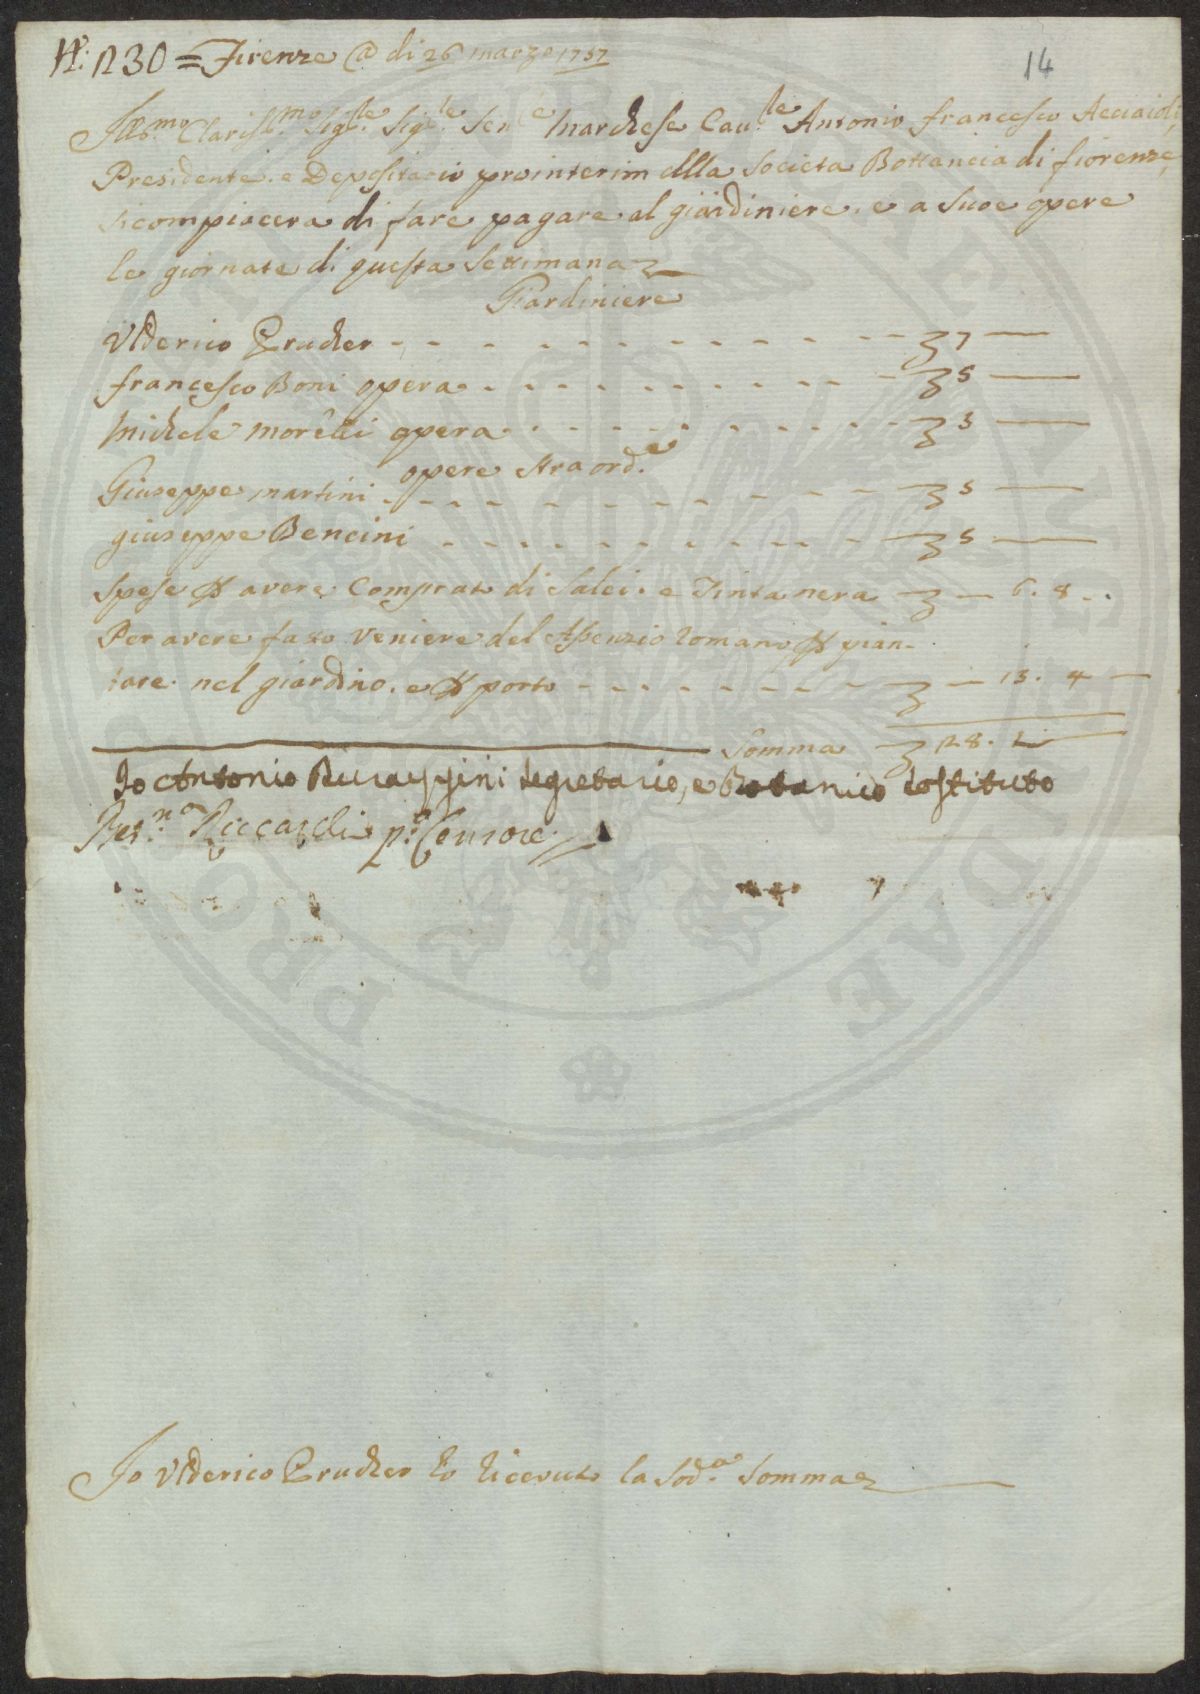 N.° 1230 = Firenze @ di 26 marzo 1757
14
Ill.mo Clariss.mo Sig.re Sig.re Sen.re Marchese Cau.re Antonio francesco Acciaioli,
Presidente. e Depositario prointerim della Società Bottanica di fiorenze,
si compiacera di fare pagare al giardiniere. e a suoe opere
le giornate di questa Settimana
Giardiniere
Vlderico Prucher - - - - - - - - - - 7 —
francesco Boni opera - - - - - - - - 5 —
Michele morelli opera - - - - - - - - 3 —
opere straord.e
Giuseppe martini - - - - - - - - - - 5 —
giuseppe Bencini - - - - - - - - - - 5 —
Spese p avere Comprato di Salci. e Tinta nera — 6. 8 -
Per avere fato Veniere del Assenzio romano p pian-
tare. nel giardino. e p porto - - - - - - - — 13. 4 —
Somma 28. —
Io Antonio Segretario, e Botanico Sostituto
Ber.no Riccardi p.o Censore
Io Vlderico Prucher ho riceuuto la Sod.a Somma
PRO